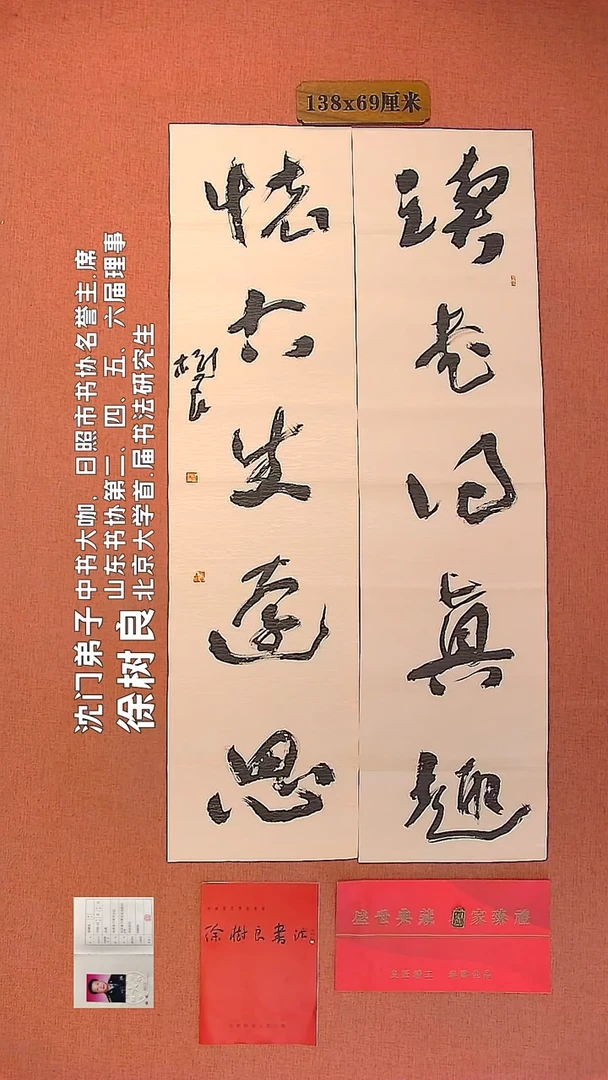 138x69厘米
讀書得真趣
懷古生遠思
樹良
沈门弟子
徐树良
中书大咖、日照市书协名誉主席
山东书协第二、四、五、六届理事
北京大学首届书法研究生
徐樹良書法